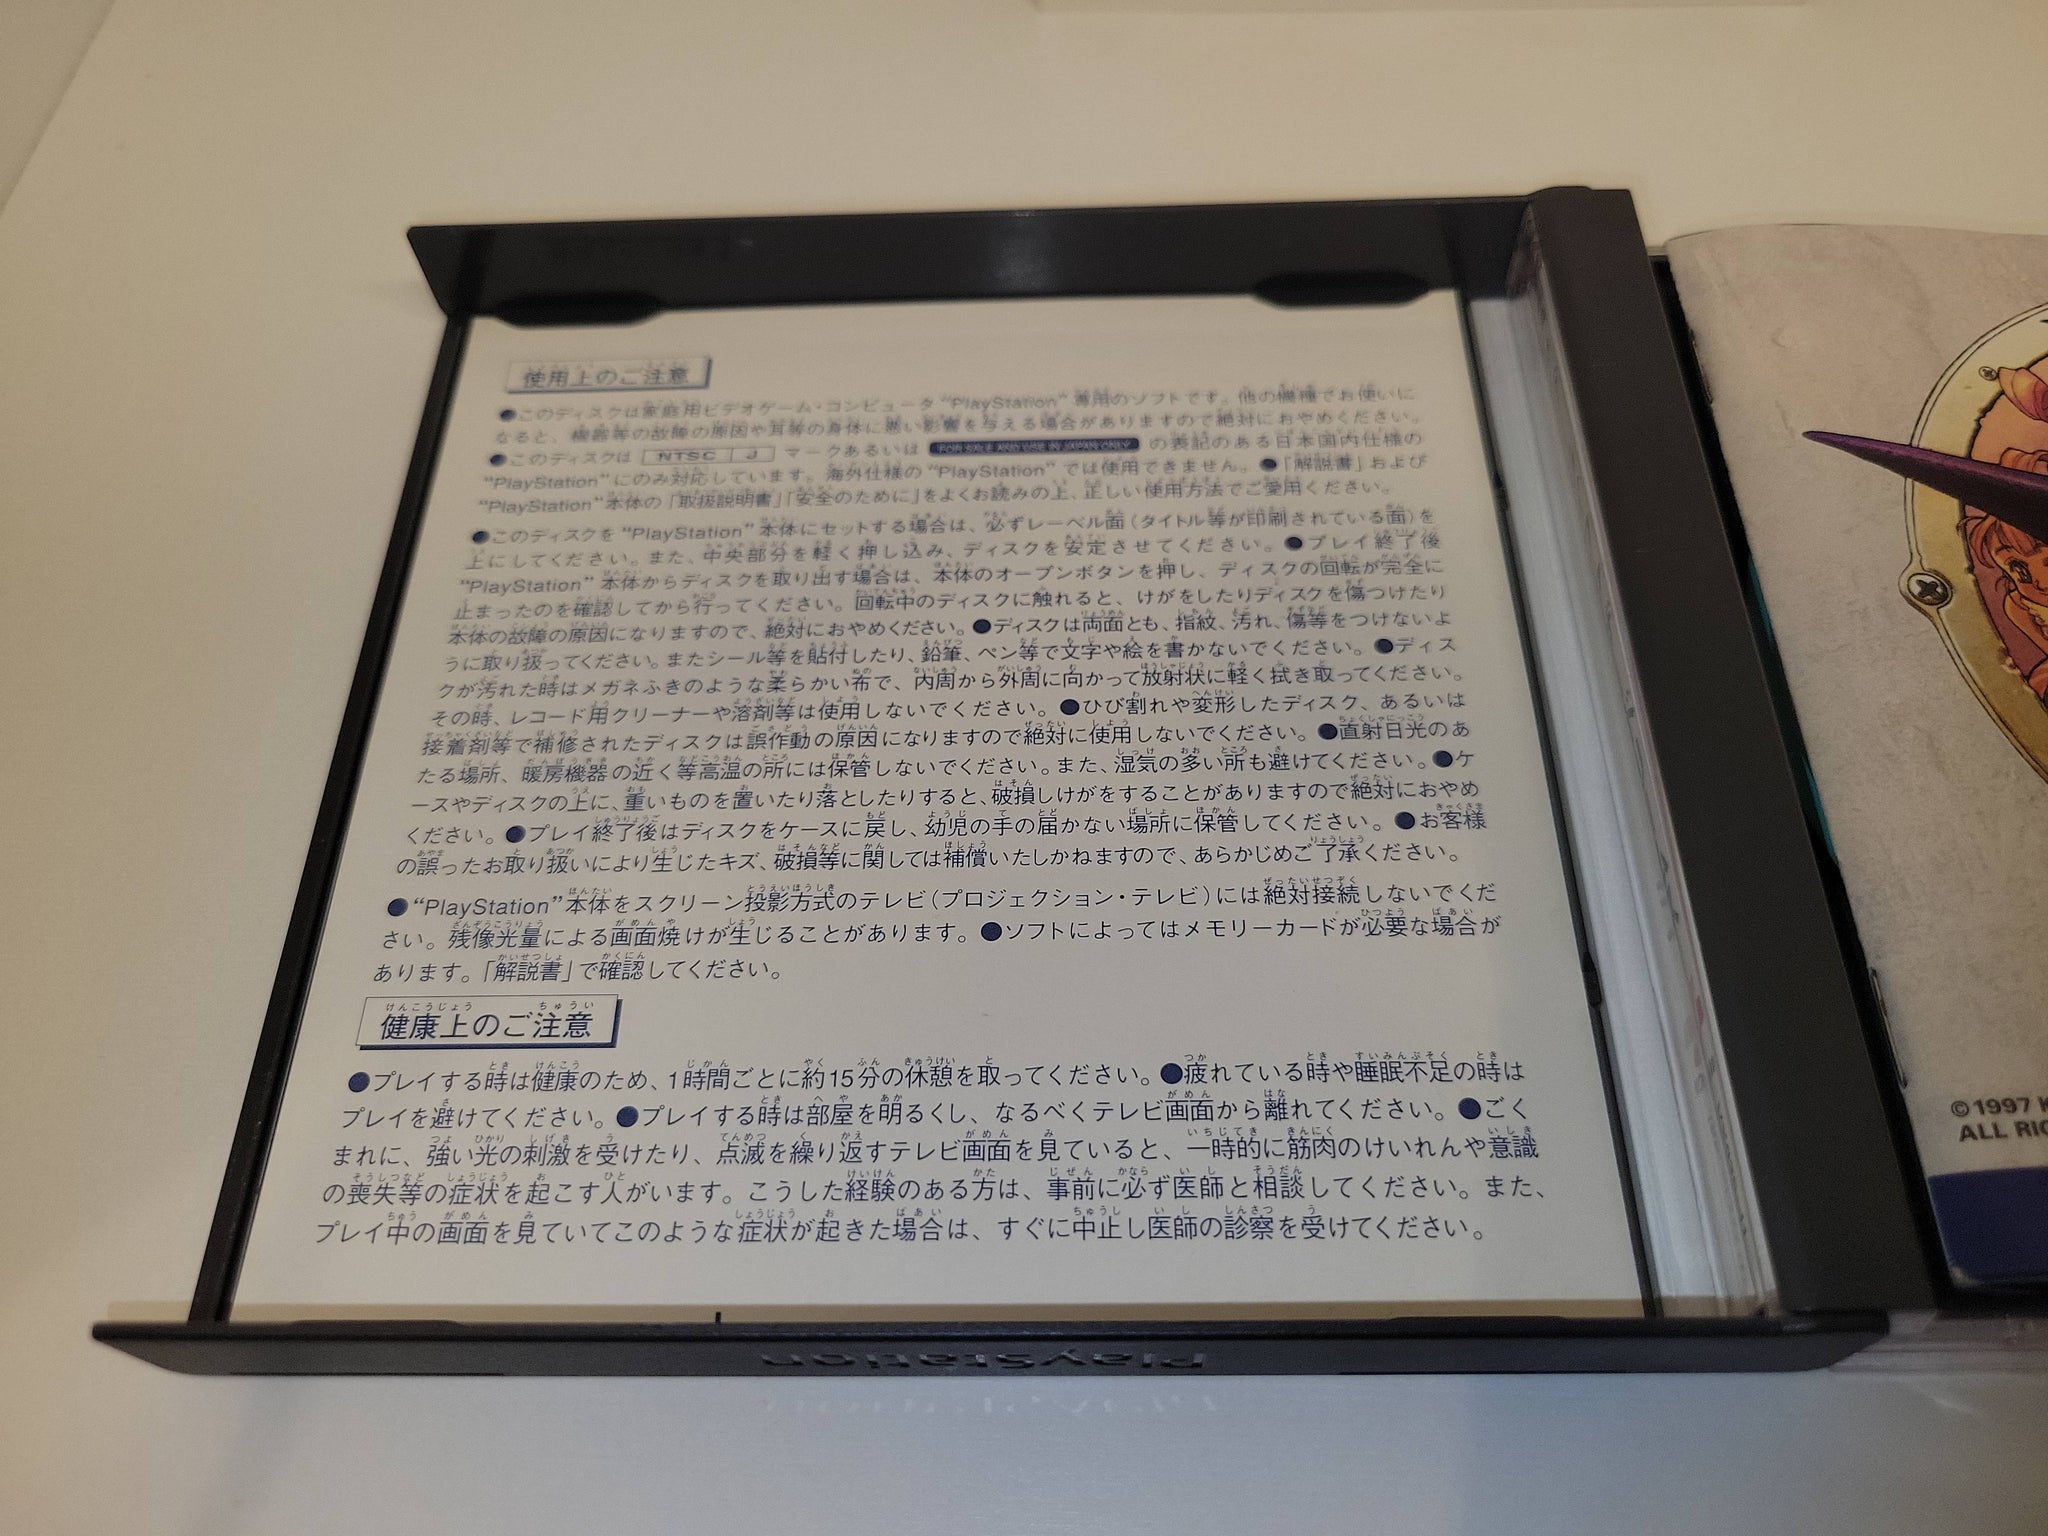 使用上のご注意
●このディスクは家庭用ビデオゲーム・コンピュータ“PlayStation”専用のソフトです。他の機種でお使いに
なると、機器等の故障の原因や耳等の身体に悪い影響を与える場合がありますので絶対におやめください。
●このディスクは NTSC J マークあるいは FOR SALE AND USE IN JAPAN ONLY の表記のある日本国内仕様の
“PlayStation”にのみ対応しています。海外仕様の“PlayStation”では使用できません。●「解説書」および
“PlayStation”本体の「取扱説明書」「安全のために」をよくお読みの上、正しい使用方法でご愛用ください。
●このディスクを“PlayStation”本体にセットする場合は、必ずレーベル面(タイトル等が印刷されている面)を
上にしてください。また、中央部分を軽く押し込み、ディスクを安定させてください。●プレイ終了後
“PlayStation”本体からディスクを取り出す場合は、本体のオープンボタンを押し、ディスクの回転が完全に
止まったのを確認してから行ってください。回転中のディスクに触れると、けがをしたりディスクを傷つけたり
本体の故障の原因になりますので、絶対におやめください。●ディスクは両面とも、指紋、汚れ、傷等をつけないよ
うに取り扱ってください。またシール等を貼付したり、鉛筆、ペン等で文字や絵を書かないでください。●ディス
クが汚れた時はメガネふきのような柔らかい布で、内周から外周に向かって放射状に軽く拭き取ってください。
その時、レコード用クリーナーや溶剤等は使用しないでください。●ひび割れや変形したディスク、あるいは
接着剤等で補修されたディスクは誤作動の原因になりますので絶対に使用しないでください。●直射日光のあ
たる場所、暖房機器の近く等高温の所には保管しないでください。また、湿気の多い所も避けてください。●ケ
ースやディスクの上に、重いものを置いたり落としたりすると、破損しけがをすることがありますので絶対におやめ
ください。●プレイ終了後はディスクをケースに戻し、幼児の手の届かない場所に保管してください。●お客様
の誤ったお取り扱いにより生じたキズ、破損等に関しては補償いたしかねますので、あらかじめご了承ください。
●“PlayStation”本体をスクリーン投影方式のテレビ(プロジェクション・テレビ)には絶対接続しないでくだ
さい。残像光量による画面焼けが生じることがあります。●ソフトによってはメモリーカードが必要な場合が
あります。「解説書」で確認してください。
健康上のご注意
●プレイする時は健康のため、1時間ごとに約15分の休憩を取ってください。●疲れている時や睡眠不足の時は
プレイを避けてください。●プレイする時は部屋を明るくし、なるべくテレビ画面から離れてください。●ごく
まれに、強い光の刺激を受けたり、点滅を繰り返すテレビ画面を見ていると、一時的に筋肉のけいれんや意識
の喪失等の症状を起こす人がいます。こうした経験のある方は、事前に必ず医師と相談してください。また、
プレイ中の画面を見ていてこのような症状が起きた場合は、すぐに中止し医師の診察を受けてください。
PlayStation
©1997 K
ALL RIG